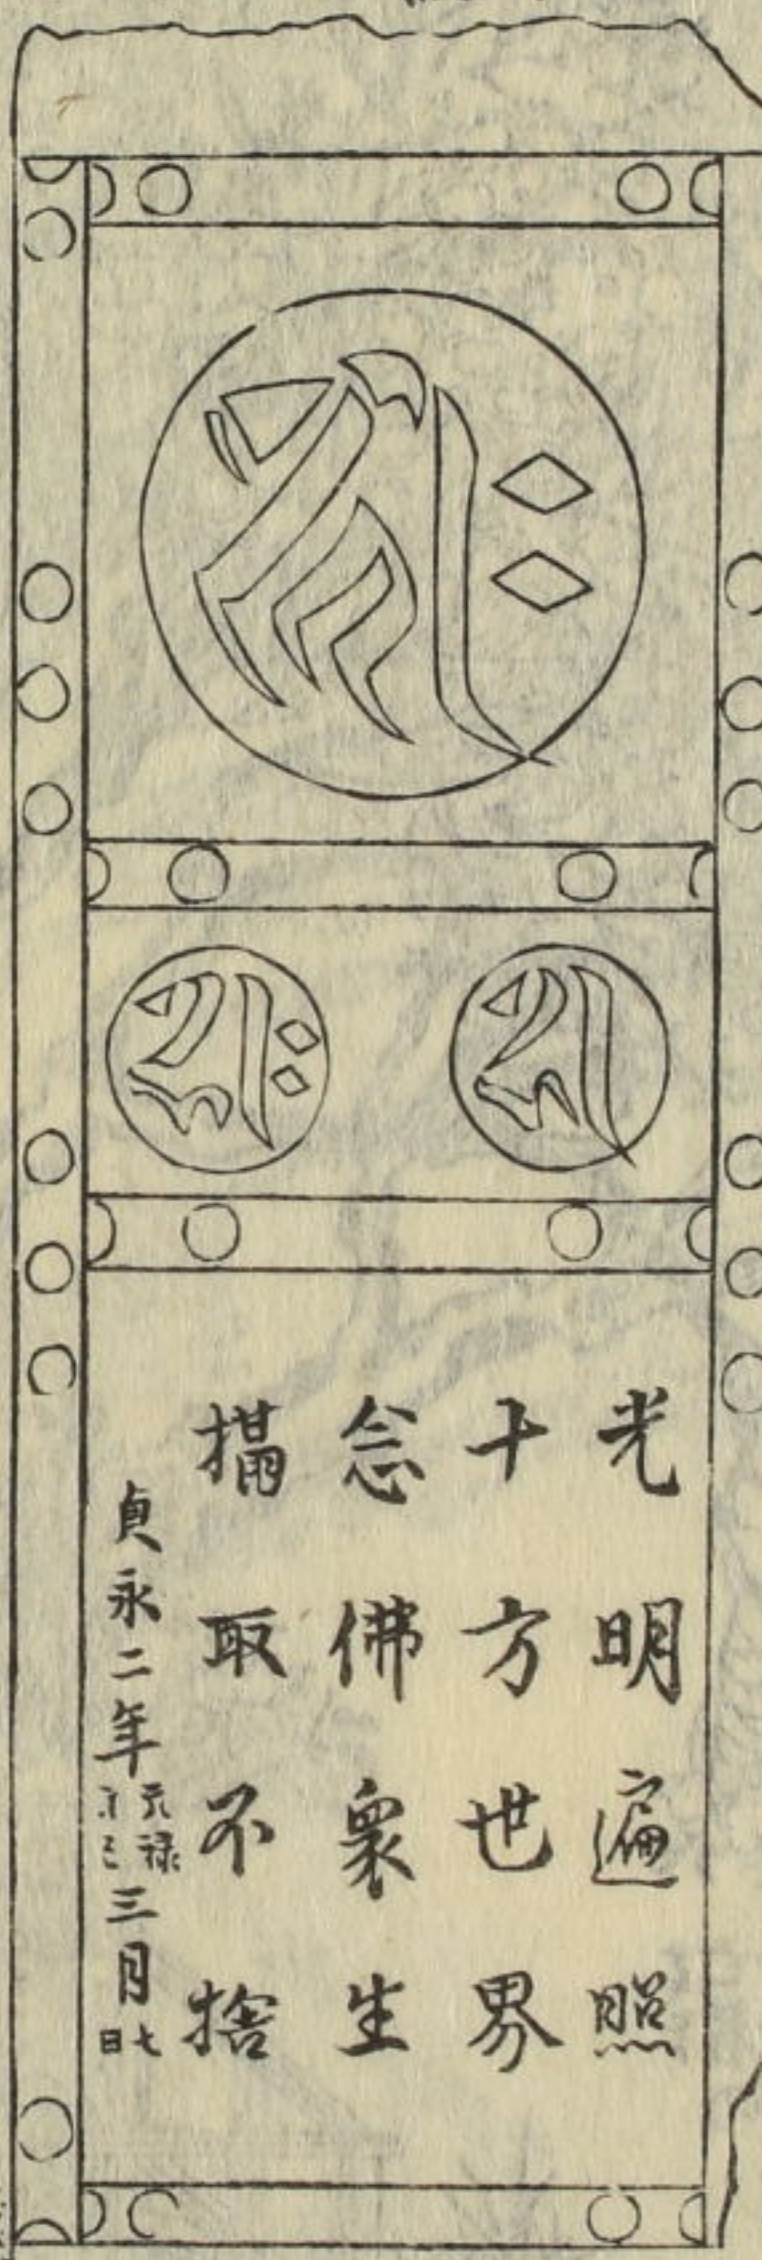 𑖮𑖿𑖨𑖱𑖾
𑖭 𑖭𑖾
光明遍照
十方世界
念佛衆生
攝取不捨
貞永二年元禄三月七日